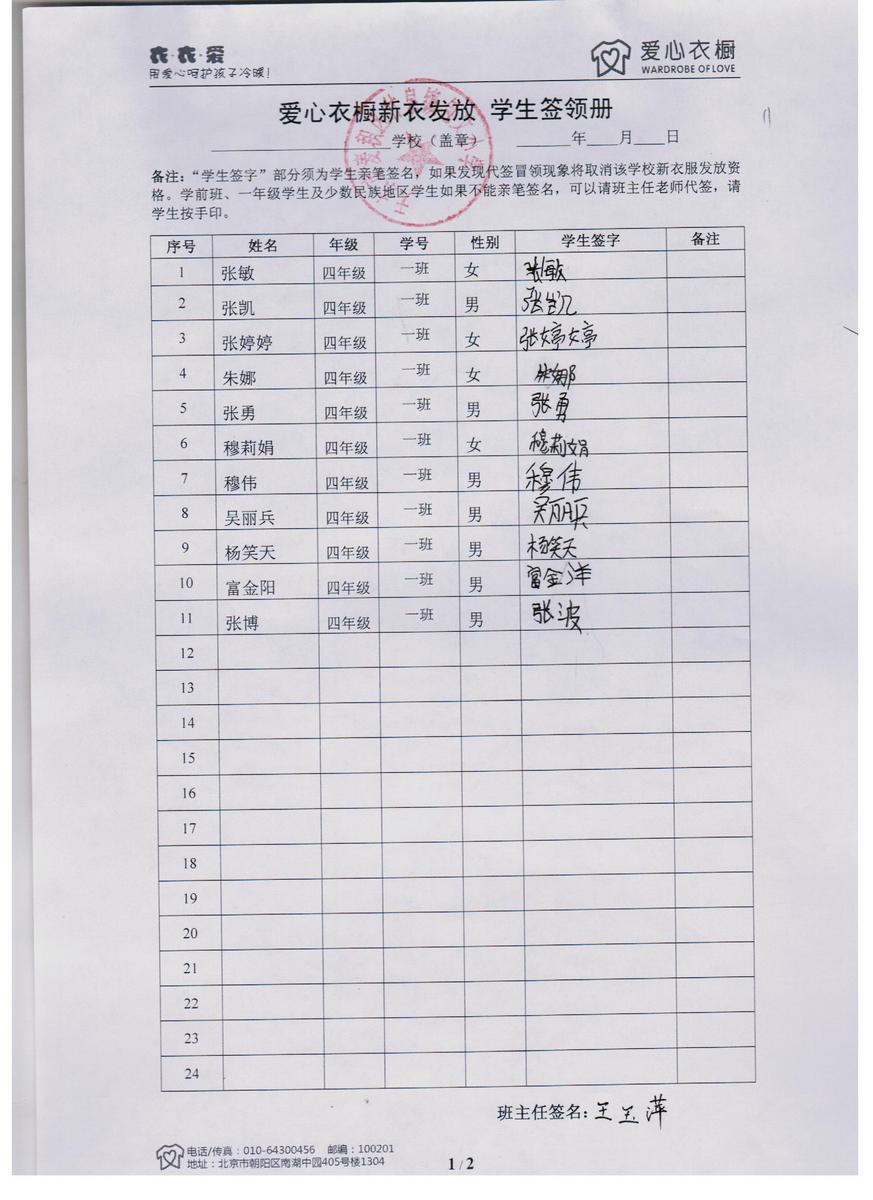 衣·衣·爱
用爱心呵护孩子冷暖!
爱心衣橱
WARDROBE OF LOVE
爱心衣橱新衣发放 学生签领册
学校（盖章） 年 月 日
备注：“学生签字”部分须为学生亲笔签名，如果发现代签冒领现象将取消该学校新衣服发放资
格。学前班、一年级学生及少数民族地区学生如果不能亲笔签名，可以请班主任老师代签，请
学生按手印。
序号 姓名 年级 学号 性别 学生签字 备注
1 张敏 四年级 一班 女 张敏
2 张凯 四年级 一班 男 张凯
3 张婷婷 四年级 一班 女 张婷婷
4 朱娜 四年级 一班 女 朱娜
5 张勇 四年级 一班 男 张勇
6 穆莉娟 四年级 一班 女 穆莉娟
7 穆伟 四年级 一班 男 穆伟
8 吴丽兵 四年级 一班 男 吴丽兵
9 杨笑天 四年级 一班 男 杨笑天
10 富金阳 四年级 一班 男 富金洋
11 张博 四年级 一班 男 张波
12
13
14
15
16
17
18
19
20
21
22
23
24
班主任签名：王玉萍
电话/传真：010-64300456 邮编：100201
地址：北京市朝阳区南湖中园405号楼1304
1 / 2